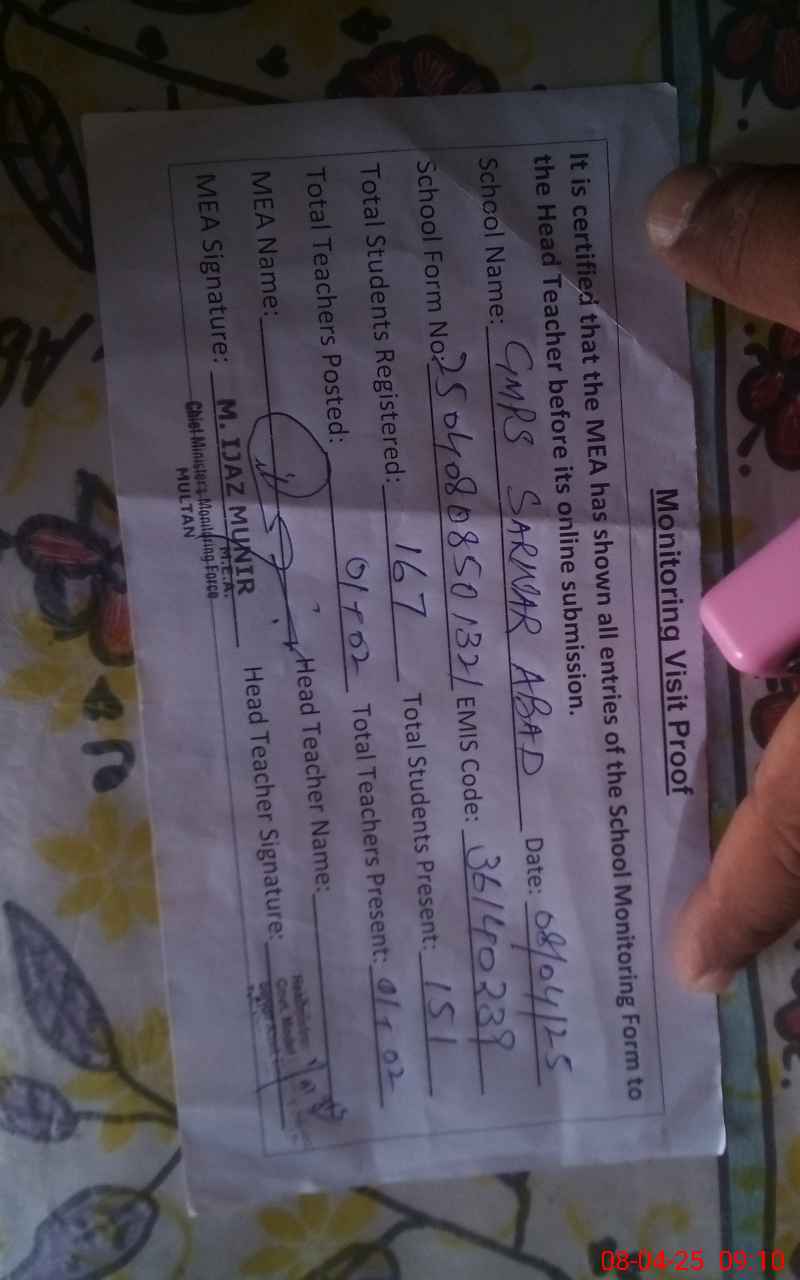 Monitoring Visit Proof
It is certified that the MEA has shown all entries of the School Monitoring Form to
the Head Teacher before its online submission.
School Name: GMPS SARWAR ABAD Date: 08/04/25
School Form No: 25040808501321 EMIS Code: 36140239
Total Students Registered: 167 Total Students Present: 151
Total Teachers Posted: 01+02 Total Teachers Present: 01+02
MEA Name: Head Teacher Name:
MEA Signature: Head Teacher Signature:
M. IJAZ MUNIR
M.E.A.
Chief Minister's Monitoring Force
MULTAN
08-04-25 09:10